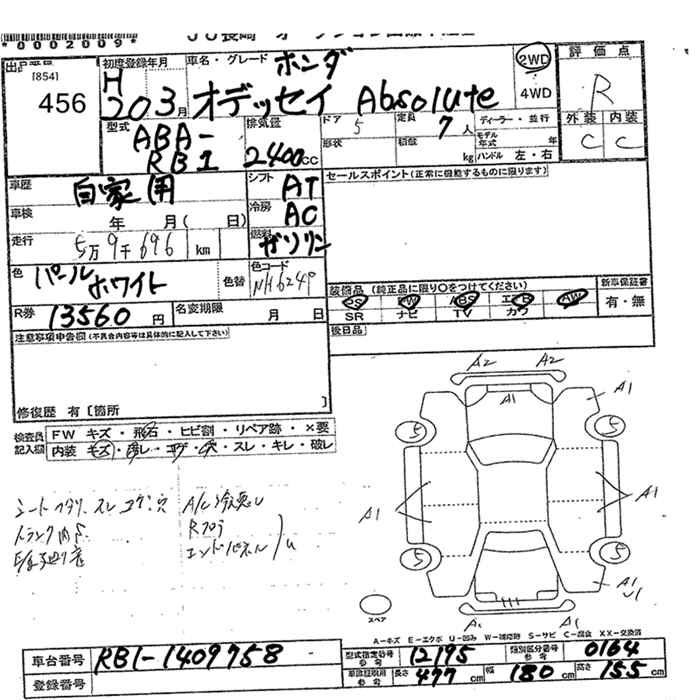 *0002009*
出品番号 初度登録年月 車名・グレード ホンダ 2WD 評価点
[854] H 4WD R
456 20 3月 オデッセイ Absolute 外装 内装
型式 排気量 ドア 5 定員 7人 ディーラー・並行 C C
ABA- 形状 積載 kg モデル年式 年
RB1 2400cc ハンドル 左・右
車歴 自家用 シフト AT セールスポイント(正常に機能するものに限ります)
車検 年 月( 日) 冷房 AC
走行 5万9千696 km 燃料 ガソリン
色 パールホワイト 色替 色コード NH624P
装備品(純正品に限り〇をつけてください) 新車保証書
PS PW ABS エアB AW 有・無
SR ナビ TV カワ
R券 13560円 名変期限 月 日 後日品
注意事項申告図(不具合内容等は具体的に記入して下さい)
修復歴 有〔箇所 〕
検査員記入欄 FW キズ・飛石・ヒビ割・リペア跡・×要
内装 キズ・汚レ・コゲ・穴・スレ・キレ・破レ
シートヘタリ スレ コゲ 穴 A/C冷悪し
トランク内
Rフロア
エンドパネル
A2 A2
A1 A1
5 5
A1 A1
5 5
A1
U1
A1 A1
スペア
A-キズ E-エクボ U-凹み W-補修跡 S-サビ C-腐食 XX-交換済
車台番号 RB1-1409758 型式指定番号 参考 12195 類別区分番号 参考 0164
登録番号 車両証明用 参考 長さ 477cm 幅 180cm 高さ 155cm